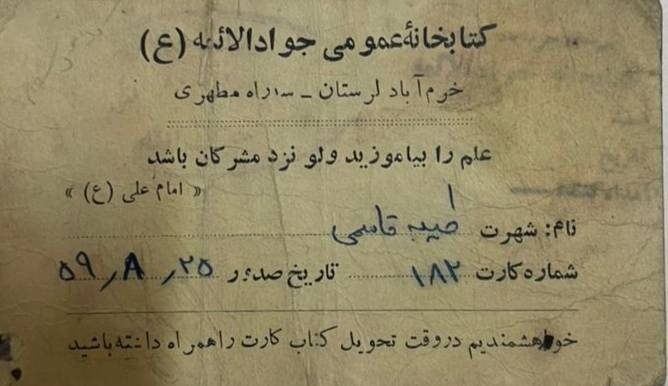 کتابخانۀ عمومی جوادالائمه (ع)
خرم‌آباد لرستان ـ سه‌راه مطهری
علم را بیاموزید ولو نزد مشرکان باشد
« امام علی (ع) »
نام: شهرت قاسمی
شماره کارت ۱۸۲ تاریخ صدور ۲۵ ر ۸ ر ۵۹
خواهشمندیم در وقت تحویل کتاب کارت را همراه داشته باشید